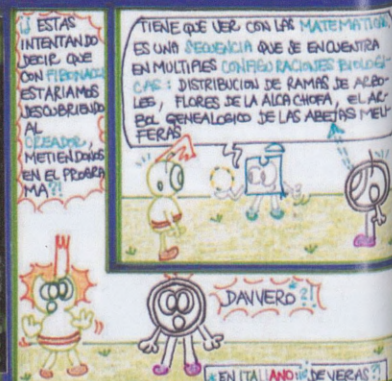 ¿¡ ESTAS
INTENTANDO
DECIR QUE
CON FIBONACCI
ESTARIAMOS
DESCUBRIENDO
AL
CREADOR,
METIENDONOS
EN EL PROGRA
MA?!
TIENE QUE VER CON LAS MATEMATICA
ES UNA SECUENCIA QUE SE ENCUENTRA
EN MULTIPLES CONFIGURACIONES BIOLOGI-
CAS: DISTRIBUCION DE RAMAS DE ARBO-
LES, FLORES DE LA ALCACHOFA, EL AR-
BOL GENEALOGICO DE LAS ABEJAS MELI-
FERAS
DAVVERO*?!
* EN ITALIANO: ¿¡DE VERAS?!